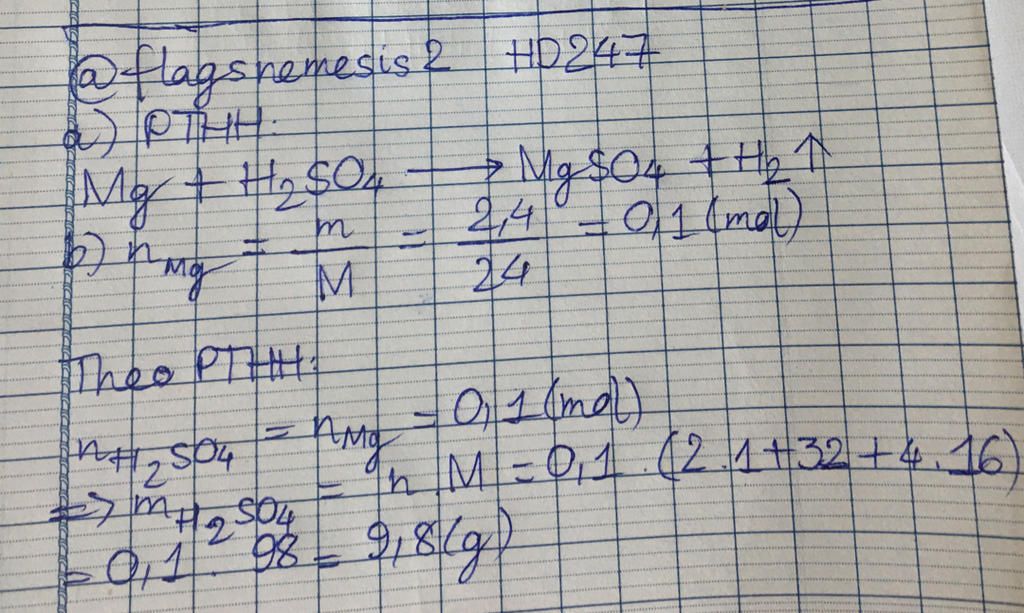 @flagsnemesis2 HD247
a) PTHH:
Mg + H₂SO₄ ⟶ MgSO₄ + H₂↑
b) n_Mg = m/M = 2,4/24 = 0,1 (mol)
Theo PTHH:
n_H₂SO₄ = n_Mg = 0,1 (mol)
=> m_H₂SO₄ = n.M = 0,1 . (2.1+32+4.16)
= 0,1 . 98 = 9,8 (g)